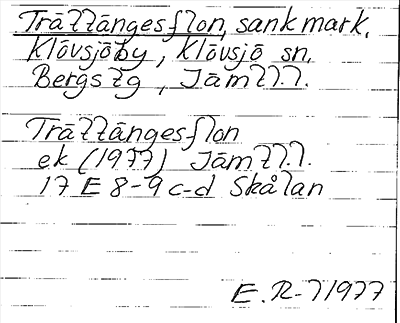 Trättängesflon, sank mark,
Klövsjöby, Klövsjö sn,
Bergs tg, Jämtl.l.
Trättängesflon
ek (1977) Jämtl.l.
17 E 8-9 c-d Skålan
E. R-7 1977